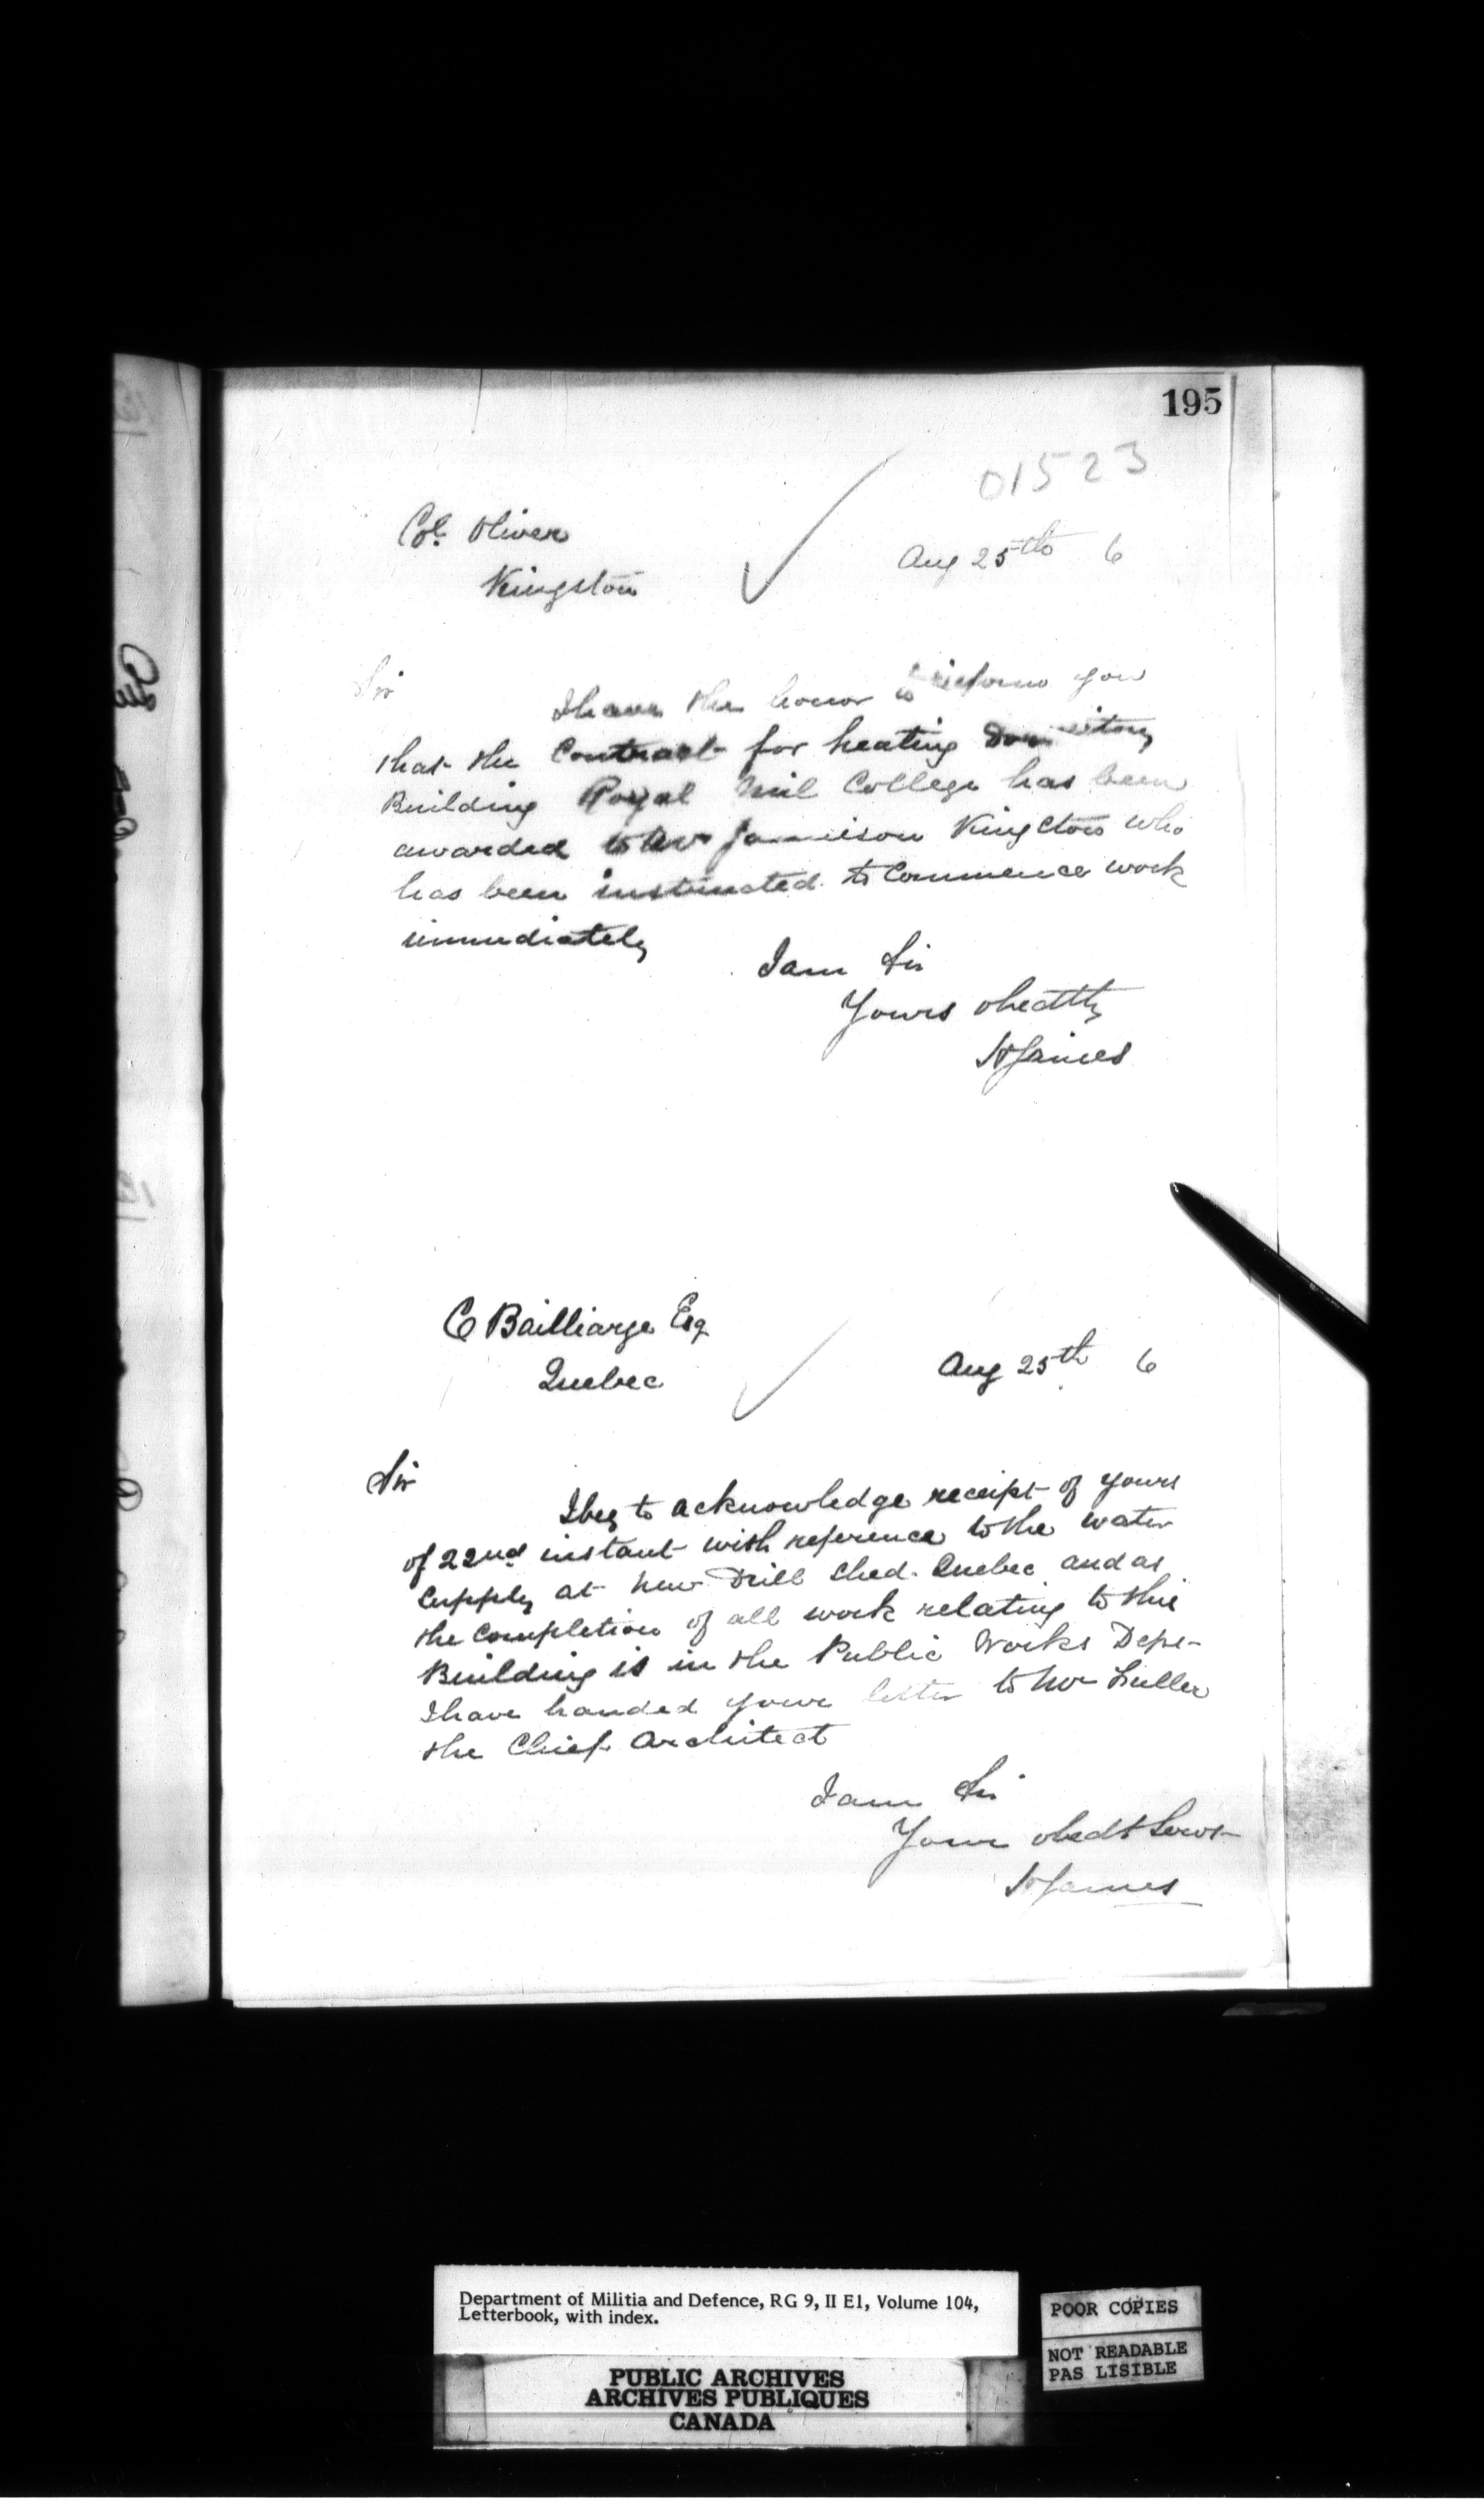 195
01523
Col. Oliver
Kingston
Aug 25th 6
Sir
I have the honor to inform you
that the Contract for heating Dormitory
Building Royal Mil College has been
awarded to Mr Jamieson Kingston who
has been instructed to Commence work
immediately
I am Sir
Yours obedtly
H James
C Bailliarge Esq
Quebec
Aug 25th 6
Sir
I beg to acknowledge receipt of yours
of 22nd instant with reference to the water
Supply at New Drill Shed Quebec and as
the Completion of all work relating to this
Building is in the Public Works Dept
I have handed your letter to Mr Fuller
the Chief Architect
I am Sir
Your obedt Servt
H James
Department of Militia and Defence, RG 9, II E1, Volume 104,
Letterbook, with index.
POOR COPIES
NOT READABLE
PAS LISIBLE
PUBLIC ARCHIVES
ARCHIVES PUBLIQUES
CANADA